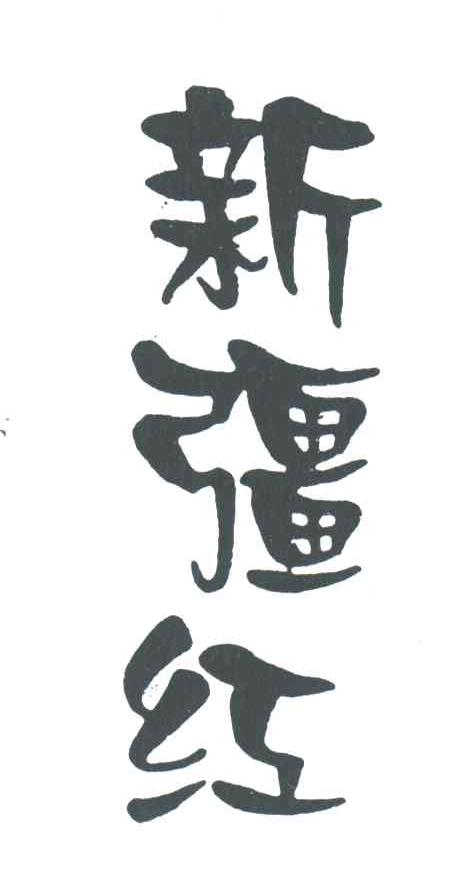 新疆红